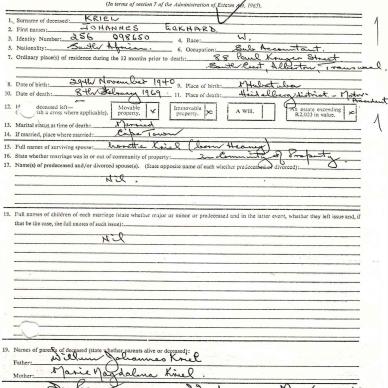 (In terms of section 7 of the Administration of Estates Act, 1965).
1. Surname of deceased: KRIEL
2. First names: JOHANNES ECKHARD
3. Identity Number: 256 098650 4. Race: W.
5. Nationality: South African 6. Occupation: Sub Accountant.
7. Ordinary place(s) of residence during the 12 months prior to death: 88 Paul Kruger Street
South East, Transvaal
8. Date of birth: 29th November 1940 9. Place of birth:
10. Date of death: 8th February 1969 11. Place of death: Heidelberg District - Motor Accident
12. deceased left— Movable property. x Immovable property. A WILL. assets exceeding R2,023 in value. x
a cross where applicable).
13. Marital status at time of death: Married
14. If married, place where married: Cape Town
15. Full names of surviving spouse: Kriel (born
16. State whether marriage was in or out of community of property: in Community of Property
17. Name(s) of predeceased and divorced spouse(s). (State opposite name of each whether predeceased or divorced):
Nil.
18. Full names of children of each marriage (state whether major or minor or predeceased and in the latter event, whether they left issue and, if
that be the case, the full names of such issue):
Nil
19. Names of parents of deceased (state whether parents alive or deceased):
Father: William Johannes Kriel
Mother: Marie Magdalena Kriel.